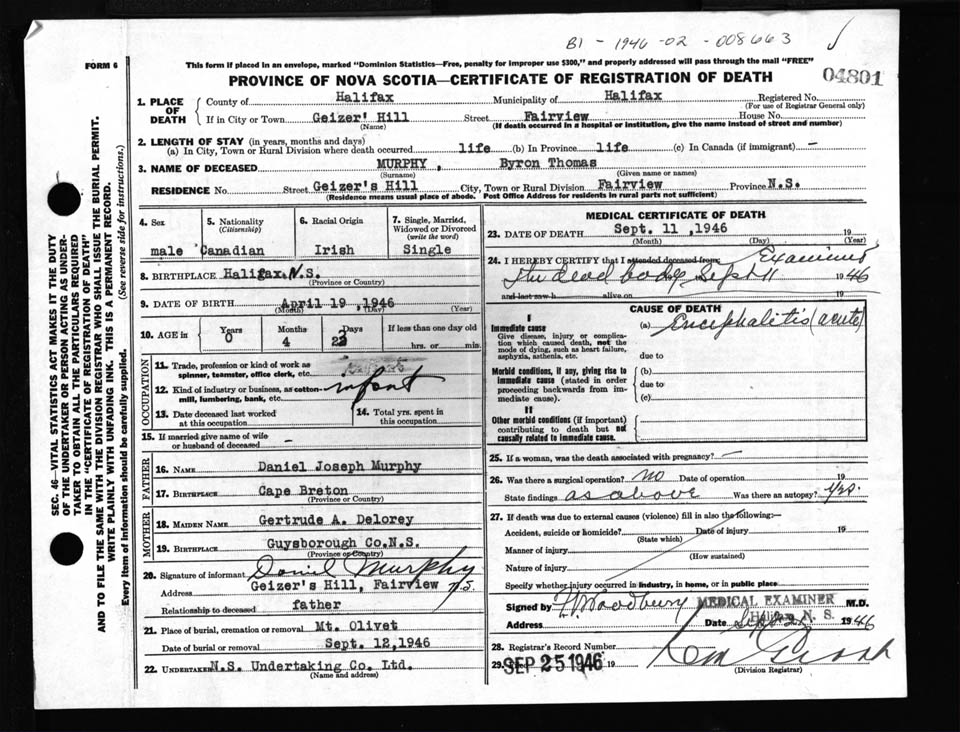 B1 - 1946 - 02 - 008663
FORM 6
This form if placed in an envelope, marked "Dominion Statistics—Free, penalty for improper use $300," and properly addressed will pass through the mail "FREE"
PROVINCE OF NOVA SCOTIA—CERTIFICATE OF REGISTRATION OF DEATH
04801
1. PLACE OF DEATH
County of Halifax Municipality of Halifax Registered No.
(For use of Registrar General only)
If in City or Town Geizer' Hill Street Fairview House No.
(Name) (If death occurred in a hospital or institution, give the name instead of street and number)
2. LENGTH OF STAY (in years, months and days)
(a) In City, Town or Rural Division where death occurred life (b) In Province life (c) In Canada (if immigrant) —
3. NAME OF DECEASED MURPHY, Byron Thomas
(Surname) (Given name or names)
RESIDENCE No. Street Geizer's Hill City, Town or Rural Division Fairview Province N.S.
(Residence means usual place of abode. Post Office Address for residents in rural parts not sufficient)
4. Sex male
5. Nationality (Citizenship) Canadian
6. Racial Origin Irish
7. Single, Married, Widowed or Divorced (write the word) Single
8. BIRTHPLACE Halifax.N.S.
(Province or Country)
9. DATE OF BIRTH April 19, 1946
(Month) (Day) (Year)
10. AGE in Years 0 Months 4 Days 23 If less than one day old
hrs. or min.
OCCUPATION
11. Trade, profession or kind of work as spinner, teamster, office clerk, etc.
12. Kind of industry or business, as cotton-mill, lumbering, bank, etc. infant
13. Date deceased last worked at this occupation
14. Total yrs. spent in this occupation
15. If married give name of wife or husband of deceased —
FATHER
16. NAME Daniel Joseph Murphy
17. BIRTHPLACE Cape Breton
(Province or Country)
MOTHER
18. MAIDEN NAME Gertrude A. Delorey
19. BIRTHPLACE Guysborough Co.N.S.
(Province or Country)
20. Signature of informant Daniel Murphy
Address Geizer's Hill, Fairview N.S.
Relationship to deceased father
21. Place of burial, cremation or removal Mt. Olivet
Date of burial or removal Sept. 12,1946
22. UNDERTAKER N.S. Undertaking Co. Ltd.
(Name and address)
MEDICAL CERTIFICATE OF DEATH
23. DATE OF DEATH Sept. 11 ,1946 19
(Month) (Day) (Year)
24. I HEREBY CERTIFY that I attended deceased from: Examined
the dead body Sept 11 1946
and last saw h alive on 19
CAUSE OF DEATH
I
Immediate cause
Give disease, injury or complication which caused death, not the mode of dying, such as heart failure, asphyxia, asthenia, etc.
(a) Encephalitis (acute)
due to
Morbid conditions, if any, giving rise to immediate cause (stated in order proceeding backwards from immediate cause).
(b)
due to
(c)
II
Other morbid conditions (if important) contributing to death but not causally related to immediate cause.
25. If a woman, was the death associated with pregnancy? —
26. Was there a surgical operation? no Date of operation 19
State findings as above Was there an autopsy? yes.
27. If death was due to external causes (violence) fill in also the following:—
Accident, suicide or homicide? Date of injury 19
(State which)
Manner of injury
(How sustained)
Nature of injury
Specify whether injury occurred in industry, in home, or in public place
Signed by Woodbury MEDICAL EXAMINER M.D.
Halifax N. S.
Address Date 1946
28. Registrar's Record Number
29. SEP 25 1946 19
(Division Registrar)
SEC. 46—VITAL STATISTICS ACT MAKES IT THE DUTY
OF THE UNDERTAKER OR PERSON ACTING AS UNDER-
TAKER TO OBTAIN ALL THE PARTICULARS REQUIRED
IN THE "CERTIFICATE OF REGISTRATION OF DEATH"
AND TO FILE THE SAME WITH THE DIVISION REGISTRAR WHO SHALL ISSUE THE BURIAL PERMIT.
WRITE PLAINLY WITH UNFADING INK. THIS IS A PERMANENT RECORD.
Every item of information should be carefully supplied. (See reverse side for instructions.)